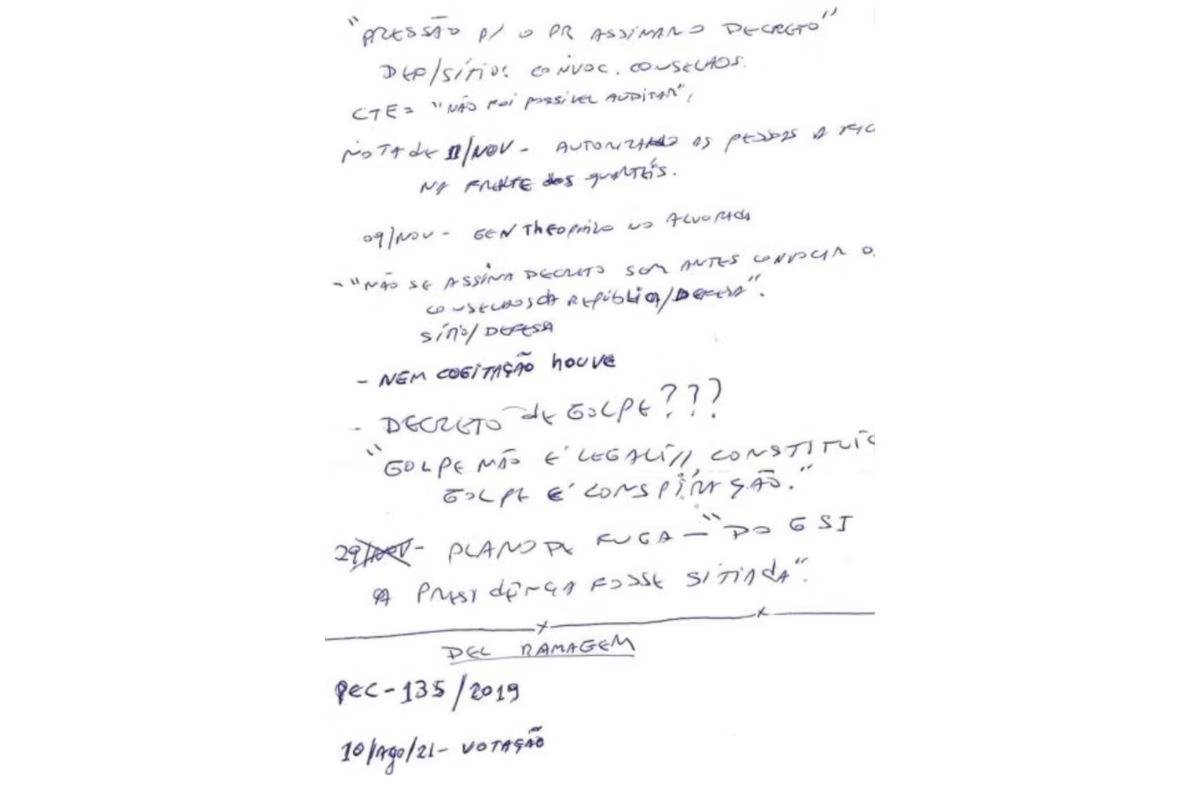 "PRESSÃO P/ O PR ASSINAR O DECRETO"
DEF/SÍTIO: CONVOC. CONSELHOS.
CTE = "NÃO FOI POSSÍVEL AUDITAR",
NOTA de 11/NOV - AUTORIZANDO AS PESSOAS A
NA FRENTE dos QUARTÉIS.
09/NOV - GEN THEOPHILO NO ALVORADA
- "NÃO SE ASSINA DECRETO SEM ANTES CONVOCAR
CONSELHOS da REPÚBLICA/DEFESA".
SÍTIO/DEFESA
- NEM COGITAÇÃO HOUVE
- DECRETO de GOLPE???
"GOLPE NÃO É LEGAL//
GOLPE É CONSPIRAÇÃO."
29/NOV - PLANO DE FUGA - "DO GSI
A PRESIDÊNCIA FOSSE SITIADA".
DEL RAMAGEM
PEC - 135/2019
10/Ago/21 - VOTAÇÃO